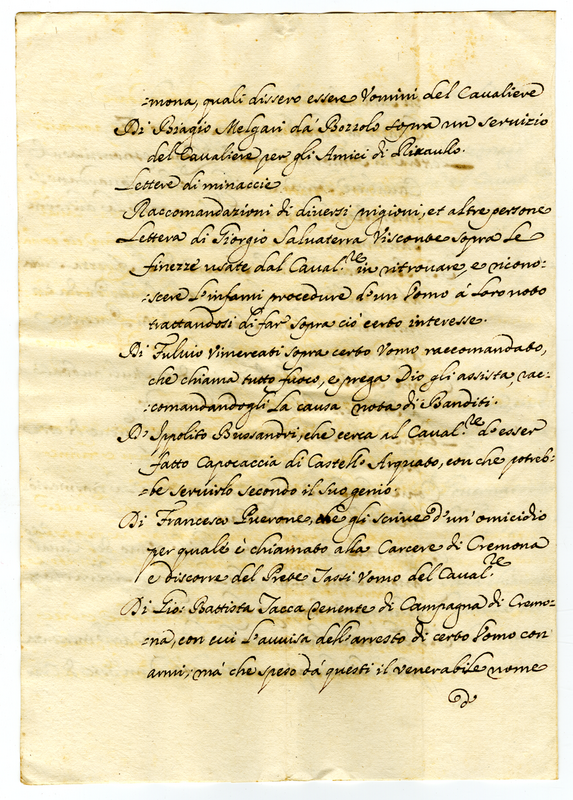 :mona, quali dissero essere Vomini del Cavaliere
Di Biagio Melgari dà Bozzolo sopra un servizio
del Cavaliere per gli Amici di
Lettere di minaccie
Raccomandazioni di diversi prigioni, et altre persone
Lettera di Giorgio Salvaterra Visconte sopra le
finezze usate dal Caval.re in ritrovare, e ricono=
:scere l'infami procedure d'un Vomo à loro noto
trattandosi di far sopra ciò certo interesse.
Di Fulvio Vimercati sopra certo Vomo raccomandato,
che chiama tutto fuoco, e prega Dio gli assista, rac=
:comandandogli la causa nota di Banditi.
D'Ippolito Bussandri, che cerca al Caval.re d'esser
fatto Capocaccia di Castell'Arquato, con che potreb=
:be servirlo secondo il suo genio.
Di Francesco Piverone, che gli scrive d'un'omicidio
per quale è chiamato alla Carcere di Cremona
e discorre del Prete Tassi Vomo del Caval.re
Di Gio: Battista Tacca Tenente di Campagna di Cremo=
:na, con cui l'avvisa dell'arresto di certo Vomo con
armi, mà che speso dà questi il venerabile nome
d